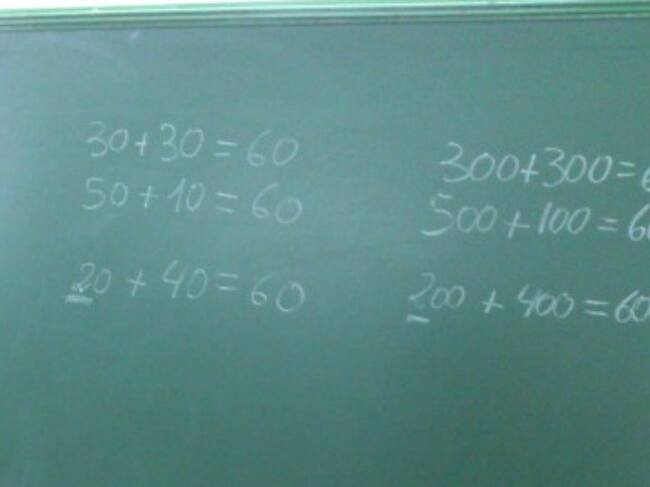 30+30=60
50+10=60
20+40=60
300+300=6
500+100=60
200+400=60